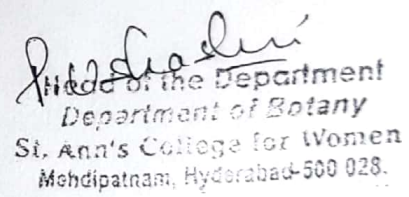 Head of the Department
Department of Botany
St. Ann's College for Women
Mehdipatnam, Hyderabad-500 028.